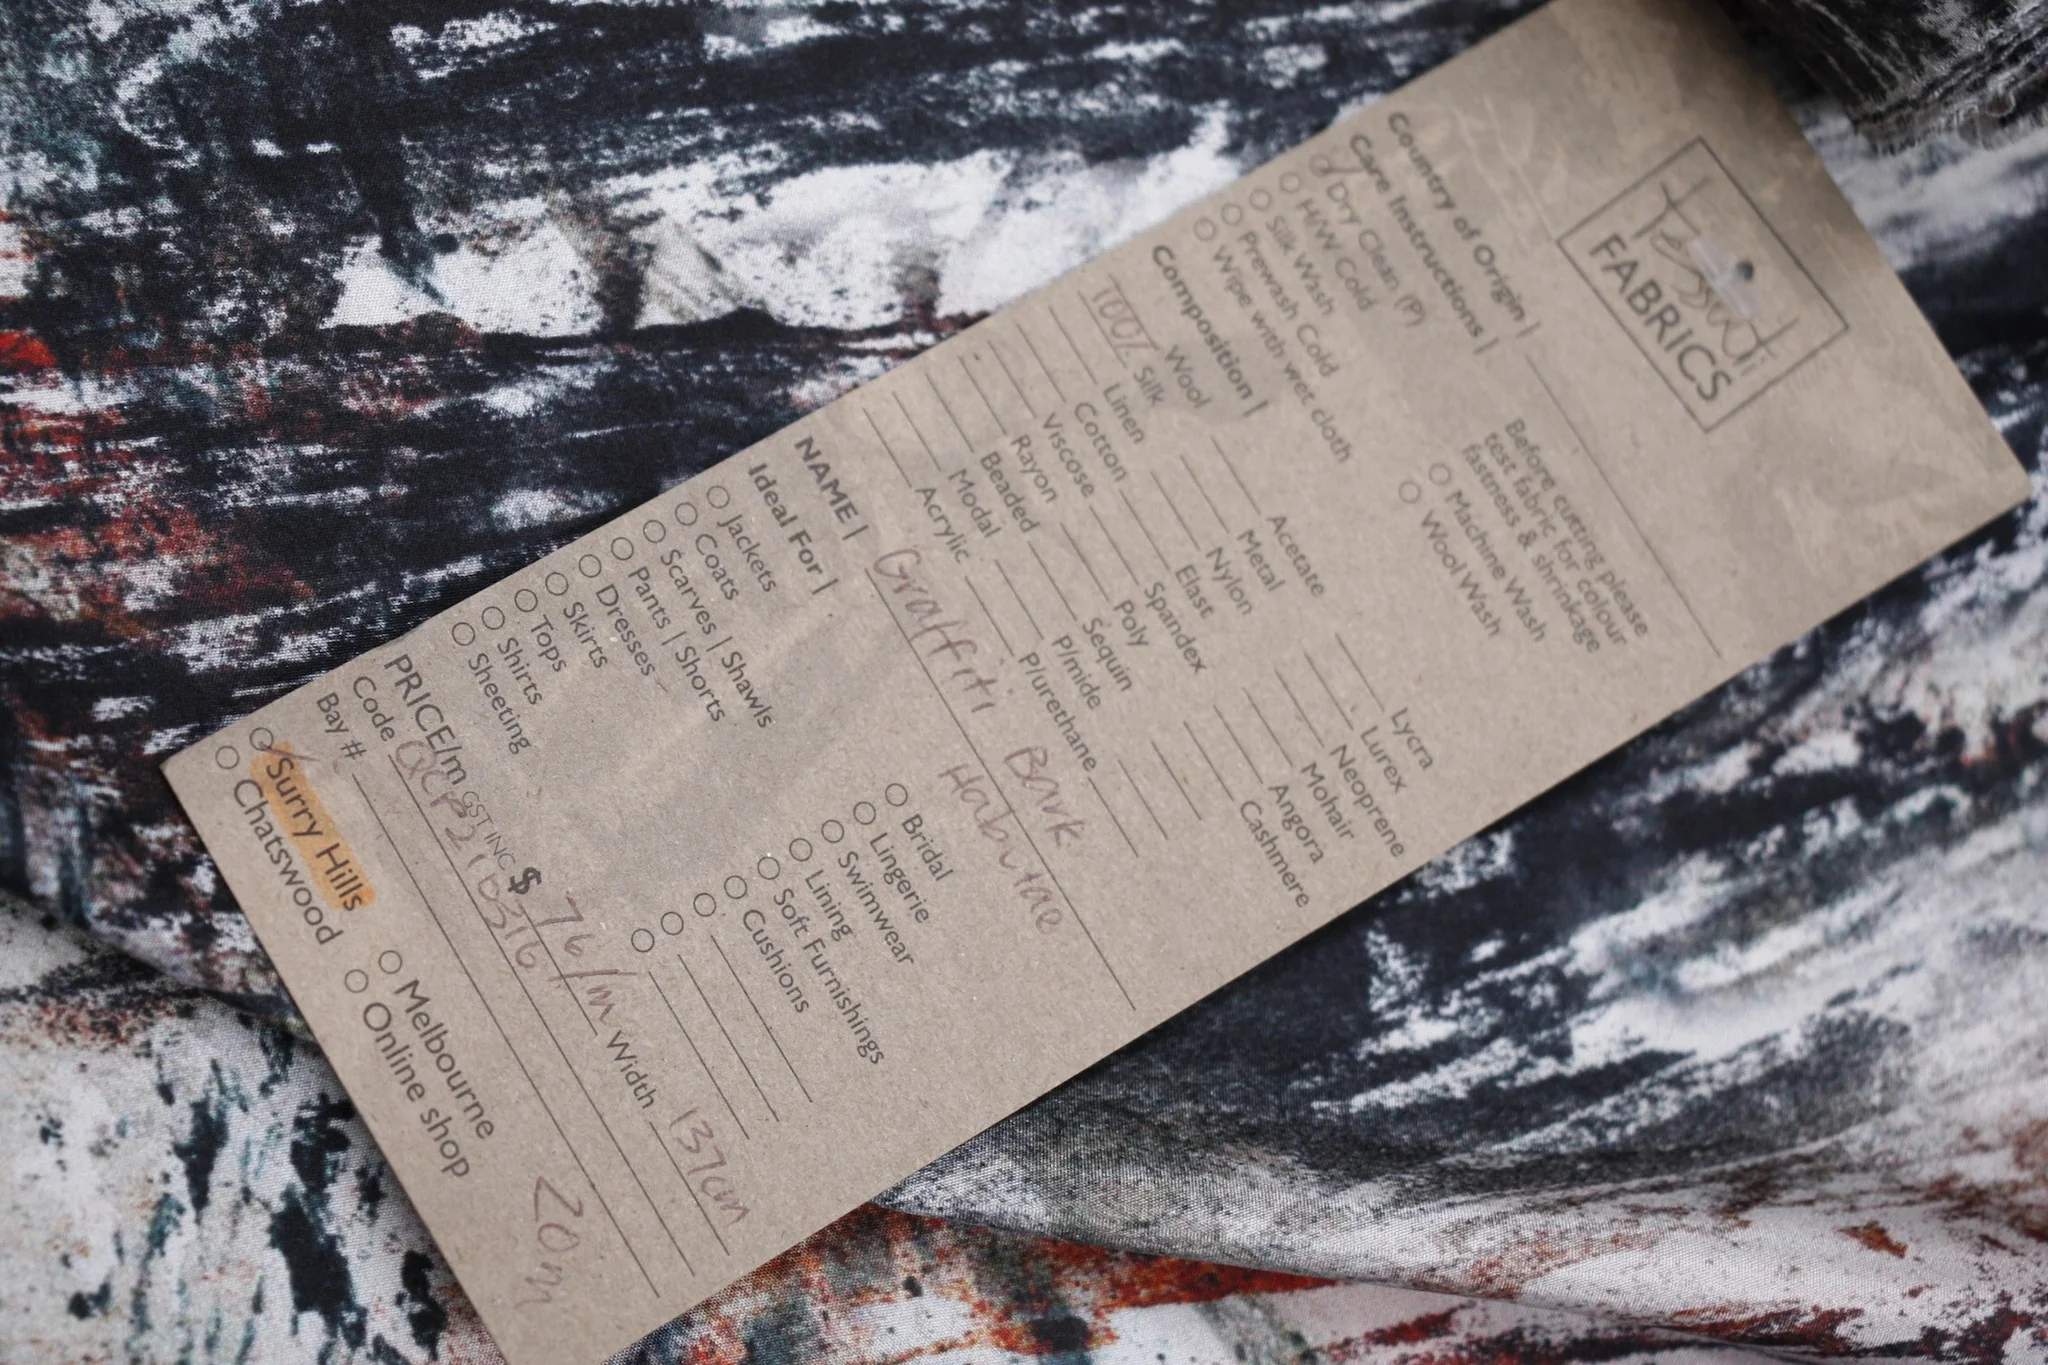 tessuti
FABRICS
Country of Origin |
Care Instructions |
Dry Clean (P)
H/W Cold
Silk Wash
Prewash Cold
Wipe with wet cloth
Before cutting please
test fabric for colour
fastness & shrinkage
Machine Wash
Wool Wash
Composition |
Wool
100% Silk
Linen
Cotton
Viscose
Rayon
Beaded
Modal
Acrylic
Acetate
Metal
Nylon
Elast
Spandex
Poly
Sequin
P/mide
P/urethane
Lycra
Lurex
Neoprene
Mohair
Angora
Cashmere
NAME | Graffiti Bark
Habutae
Ideal For |
Jackets
Coats
Scarves | Shawls
Pants | Shorts
Dresses
Skirts
Tops
Shirts
Sheeting
Bridal
Lingerie
Swimwear
Lining
Soft Furnishings
Cushions
PRICE/m GST INC $ 76/m Width 137cm
Code
Bay #
Surry Hills
Chatswood
Melbourne
Online shop
20m